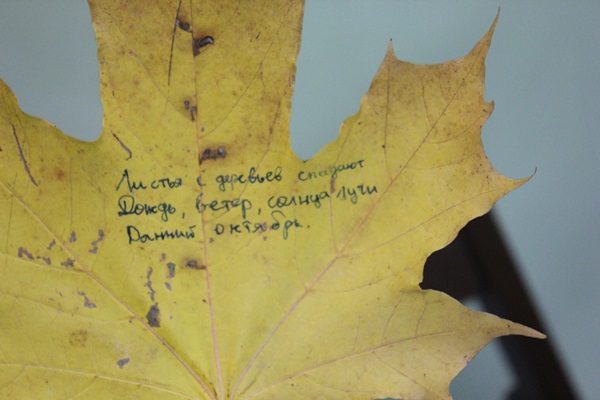 Листья с деревьев спадают
Дождь, ветер, солнца лучи
Данний октябрь.